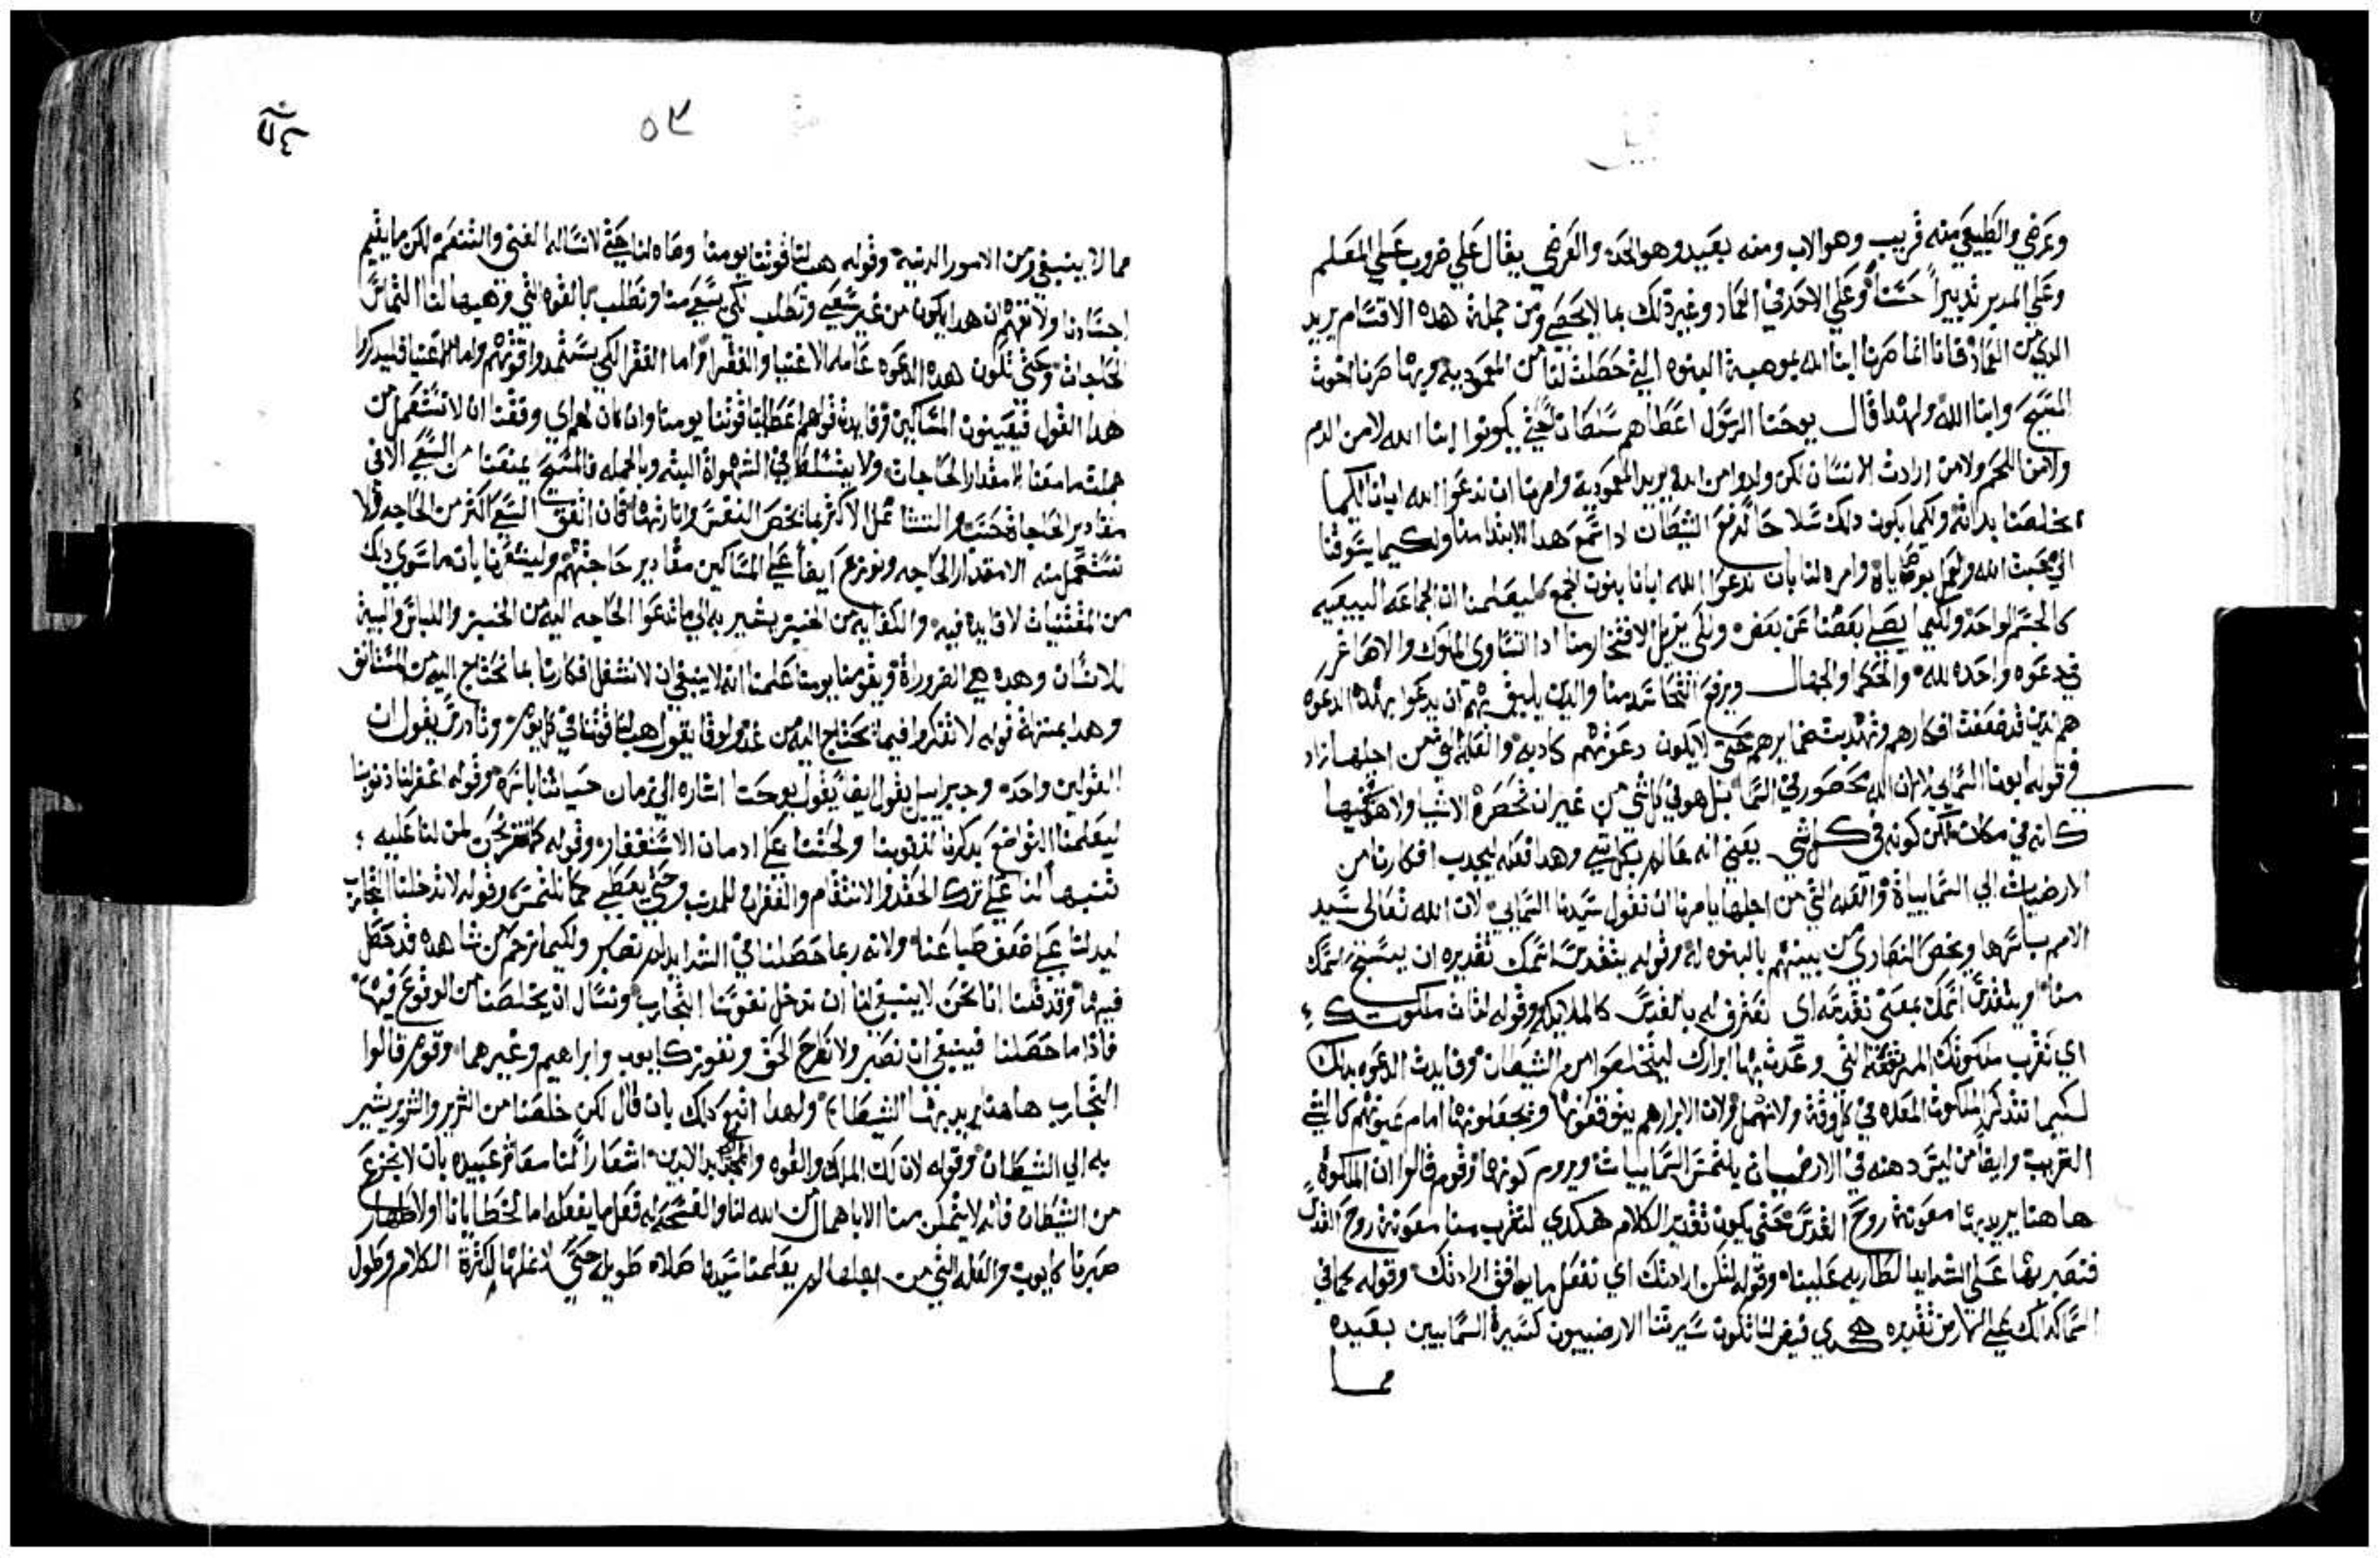 وعرضي والطبيعي منه قريب وهو الاب ومنه بعيد وهو الجد والعرضي يقال علي ضروب علي المعلم
وعلي المدبر تدبيراً حسناً وعلي الاخد في العماد وغير دلك مما لا يحصي ومن جملة هده الاقسام يريد
الدي من العماد فانا انما صرنا ابنا الله بموهبة البنوه التي حصلت لنا من المعموديه وبها صرنا اخوت
المسيح وابنا الله ولهدا قال يوحنا الرسول اعطاهم سلطان لكي يكونوا ابنا الله لا من الدم
ولا من اللحم ولا من ارادت الانسان لكن ولدوا من الله يريد المعمودية وامرنا ان ندعوا الله ابانا لكيما
يخلصنا بداته ولكيما يكون دلك سلاحاً لدفع الشيطان ادا سمع هدا الابتدا منا ولكيما يشوقنا
الي محبت الله والعمل بوصاياه وامره لنا بان ندعوا الله ابانا بنون الجمع ليعلمنا ان الجماعه البيعيه
كالجسم الواحد ولكيما يصلي بعضنا عن بعض ولكي يزيل الافتخار منا ادا تساوي الملوك والاصاغر
في دعوه واحده لله والحكما والجهال ويرفع الشحنا من بيننا والدين يليق بهم ان يدعوا بهده الدعوه
هم الدين قد ضعفت افكارهم وتهدبت ضمايرهم حتي لا يكون دعوتهم كادبه والعله التي من اجلها زاد
في قوله ابونا السمايي لا لان الله محصور في السما بل هو في كل شي من غير ان تحصره الاشيا ولا هو فيها
كانه في مكان لكن كونه في كل شي يعني انه عالم بكل شي وهدا فعله ليجدب افكارنا من
الارضيات الي السماييات والعله التي من اجلها يامرنا ان نقول سيدنا السمايي لان الله تعالى سيد
الامم باسرها ويخص النصاري من بينهم بالبنوه له وقوله يتقدس اسمك تقديره ان يسبح اسمك
منا ويتقدس اسمك بمعني نقدسه اي نعترف له بالقدس كالملايكه وقوله لتات ملكوتك
اي تقرب ملكوتك المرتفعة التي وعدت بها ابرارك ليتخلصوا من الشيطان وفايدت الدعوه بدلك
لكيما نتدكر الملكوت المعده في كل وقت ولا نهمل ولان الابرار هم يتوقعونها ويجعلونها امام عيونهم كالشي
القريب وايضاً من ليس دهنه في الارضيات يلتمس السماييات ويروم كونها وقوم قالوا ان الملكوت
هاهنا يريد بها معونة روح القدس حتي يكون تقدير الكلام هكدي لتقرب منا معونة روح القدس
فنصبر بها علي الشدايد الطاريه علينا وقوله لتكن ارادتك اي نفعل ما يوافق ارادتك وقوله كما في
السما كدلك علي الارض تقديره هكدي فيض لنا تكون سيرتنا الارضييون كسيرة السماييين بعيده
مما
٥٣
مما لا ينبغي ومن الامور الدنيه وقوله هب لنا قوتنا يومنا وصاه لنا حتي لا نسال الغني والتنعم لكن ما يقيم
اجسادنا ولا نفهم ان هدا يكون من غير سعي وتطلب لكي بسعي منا وتطلب بالقوه التي وهبها لنا التماس
الحاجات وحتي تكون هده الدعوه عامه الاغنيا والفقرا واما الفقرا لكي يستمدوا قوتهم واما الاغنيا فليدكروا
هدا القول فيعينون المساكين وفايدة قولهم اعطنا قوتنا يومنا وان كان لهم اي وقتنا ان لا نستعمل من
جملت ما معنا الا مقدار الحاجات ولا ينشط في الشهوات البته وبالجمله فالمسيح يمنعنا من السعي الا في
مقادير الحاجات
نستعمل منه الا مقدار الحاجه ونوزع ايضاً علي المساكين مقادير حاجتهم وليشعرنا بان ما سوي دلك
من المقتنيات لا فايده فيه والكفايه من الخبز يشير به الي ما تدعوا الحاجه اليه من الخبز واللباس والبيت
للانسان وهده هي الضروراة وبقوته يومنا يومنا علمنا انه لا ينبغي ان لا نشغل افكارنا بما نحتاج اليه من المستانف
وهدا بمنزلة قوله لا تفكروا فيما نحتاج اليه من غد ولوقا يقول هب لنا قوتنا في كل يوم وتادرس يقول ان
القولين واحد
ليعلمنا التواضع بدكرنا لدنوبنا ولحتنا علي ادمان الاستغفار وقوله كما نترك نحن لمن لنا عليه
تنبيهاً لنا علي ترك الحقد والانتقام والغفران للمدنب وحتي يعطي مما نلتمس وقوله لا تدخلنا التجارب
ليدلنا علي ضعف طباعنا ولانه ربما حصلنا في الشدايد ولم نصبر ولكيما نرحم من نشاهده قد حصل
فيها وقد قلنا انا نحن لا ينبغي لنا ان ندخل نفوسنا التجارب ونسال ان يخلصنا من الوقوع فيها
فادا ما حصلنا فينبغي ان نصبر ولا نطرح الحق ونفوز كايوب وابراهيم وغيرهما وقوم قالوا
التجارب هاهنا يريد بها الشيطان ولهدا اتبع دلك بان قال لكن خلصنا من الشرير والشرير يشير
به الي الشيطان وقوله لان لك الملك والقوه والمجد الي ابد الابدين اشعاراً لنا معاشر عبيده بان لا نجزع
من الشيطان فانه لا يتمكن منا الا باهمال من الله لنا والفسحه له فعل ما يفعله اما لخطايانا او لاظهار
صبرنا كايوب والعله التي من اجلها لم يعلمنا سيدنا صلاه طويله حتي لا نملها لكثرة الكلام وطول